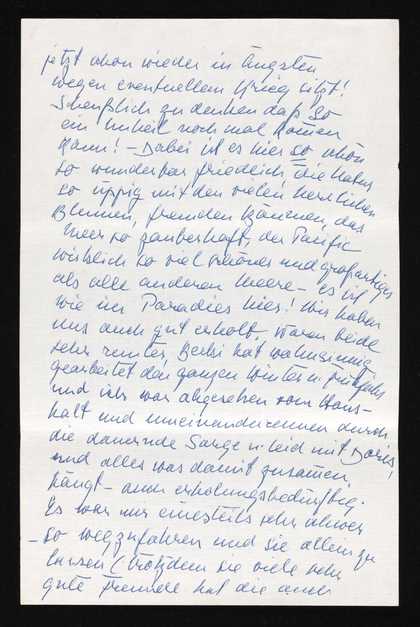 jetzt schon wieder in Ängsten
wegen eventuellem Krieg sitzt!
Scheußlich zu denken daß so
ein Unheil noch mal kommen
kann! – Dabei ist es hier so schön
so wunderbar friedlich, die Natur
so üppig mit den vielen herrlichen
Blumen, fremden Bäumen, das
Meer so zauberhaft, der Pacific
wirklich so viel schöner und großartiger
als alle anderen Meere – es ist
wie im Paradies hier! Wir haben
uns auch gut erholt, waren beide
sehr runter, hat wahnsinnig
gearbeitet den ganzen Winter u. Frühjahr
und ich war abgesehen vom Haus-
halt und durch
die dauernde Sorge u. Leid mit Doris,
und alles was damit zusamen
hängt – auch erholungsbedürftig.
Es war nur einesteils sehr schwer
– so wegzufahren und sie allein zu
lassen (trotzdem sie viele sehr
gute Freunde hat die auch